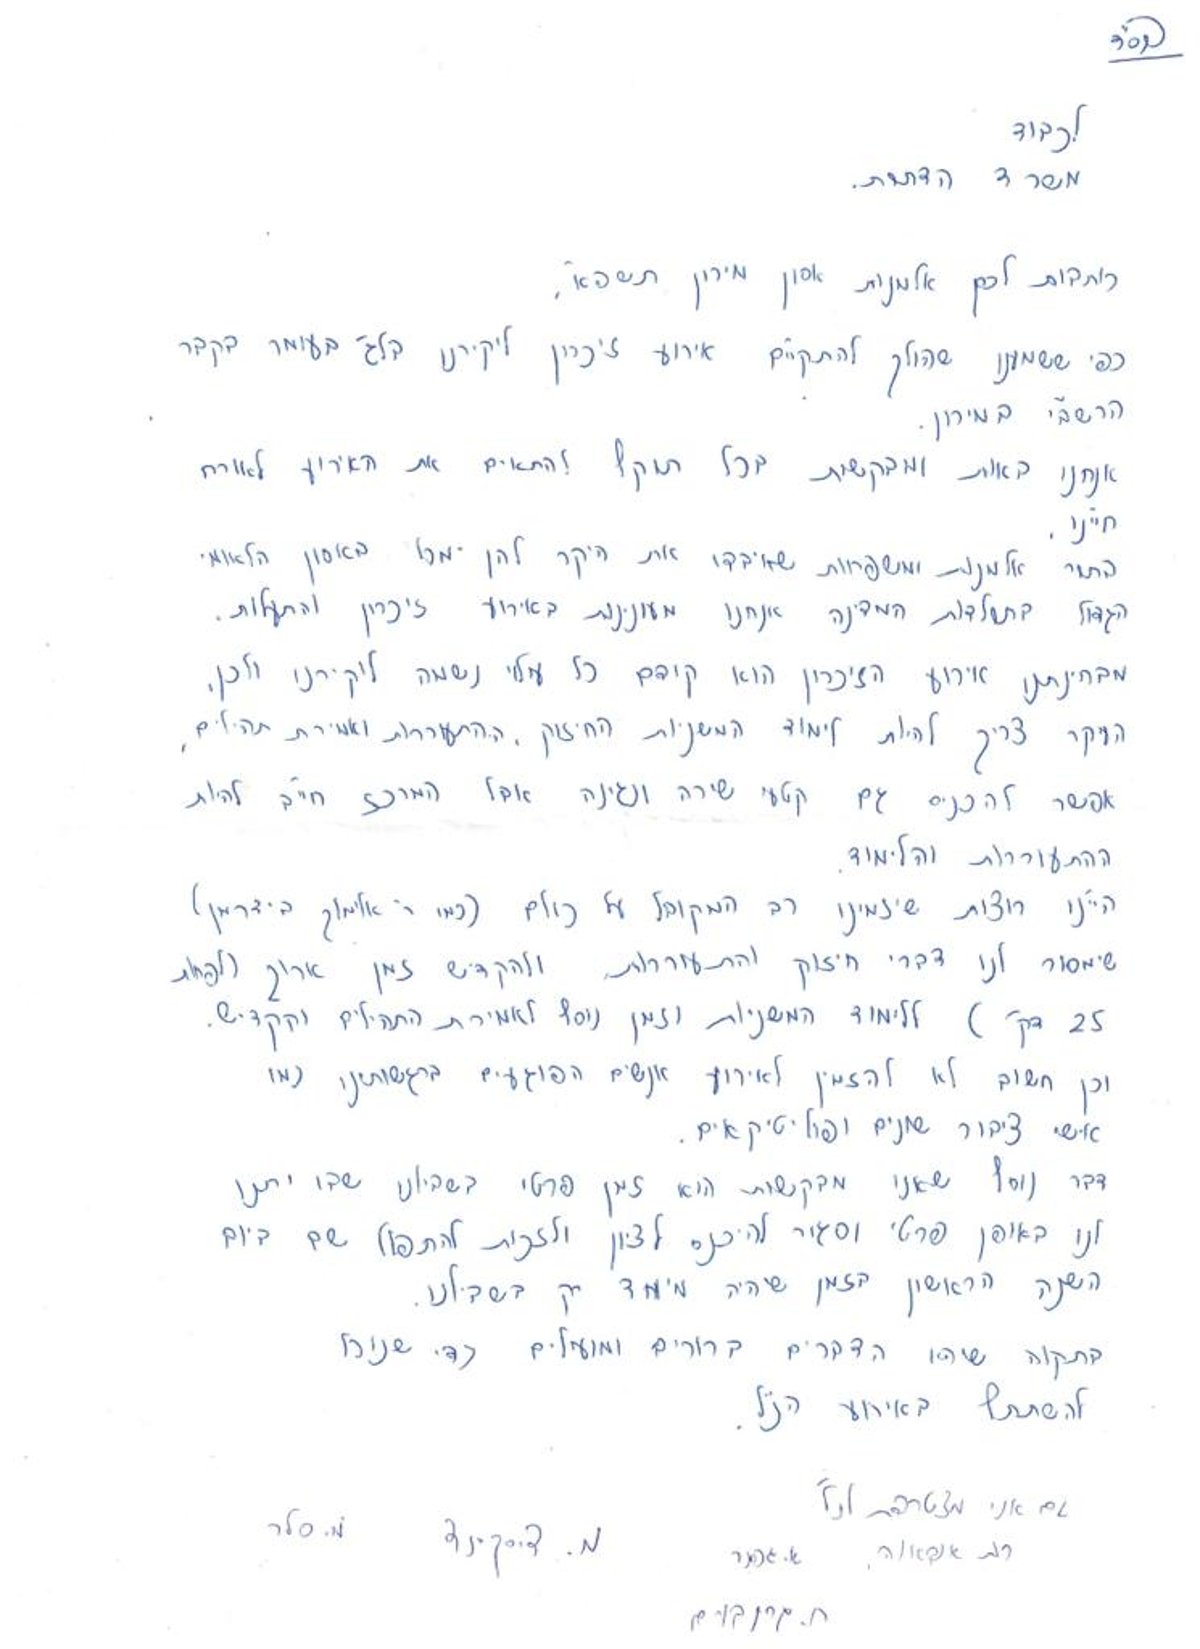 בס"ד
לכבוד
משרד הדתות.
כותבות לכם אלמנות אסון מירון תשפ"א,
כפי ששמענו שהולך להתקיים אירוע זיכרון ליקירנו בל"ג בעומר בקבר
הרשב"י במירון.
אנחנו באות ומבקשות בכל תוקף להתאים את האירוע לאורח
חיינו.
בתור אלמנות ומשפחות שאיבדו את היקר להן מכל באסון הלאומי
הגדול בתולדות המדינה אנחנו מעונינות באירוע זיכרון והתעלות.
מבחינתנו אירוע הזיכרון הוא קודם כל עילוי נשמה ליקירנו ולכן,
העיקר צריך להיות לימוד המשניות החיזוק, ההתעוררות ואמירת תהילים,
אפשר להכניס גם קטעי שירה ונגינה אבל המרכז חייב להיות
ההתעוררות והלימוד.
היינו רוצות שיזמינו רב המקובל על כולם (כמו ר' אלימלך בידרמן)
שימסור לנו דברי חיזוק והתעוררות, ולהקדיש זמן ארוך (לפחות
25 דק') ללימוד המשניות וזמן נוסף לאמירת התהילים וקדיש.
וכן חשוב לא להזמין לאירוע אנשים הפוגעים ברגשותינו כמו
אישי ציבור שונים ופוליטיקאים.
דבר נוסף שאנו מבקשות הוא זמן פרטי בשבילנו שבו יתנו
לנו באופן פרטי וסגור להיכנס לציון ולזכות להתפלל שם ביום
השנה הראשון בזמן שיהיה מיועד רק בשבילנו.
בתקוה שיהיו הדברים ברורים ומועילים כדי שנוכל
להשתתף באירוע הנ"ל.
גם אני מצטרפת לנ"ל
מ. דיסקינד
מ. סלר